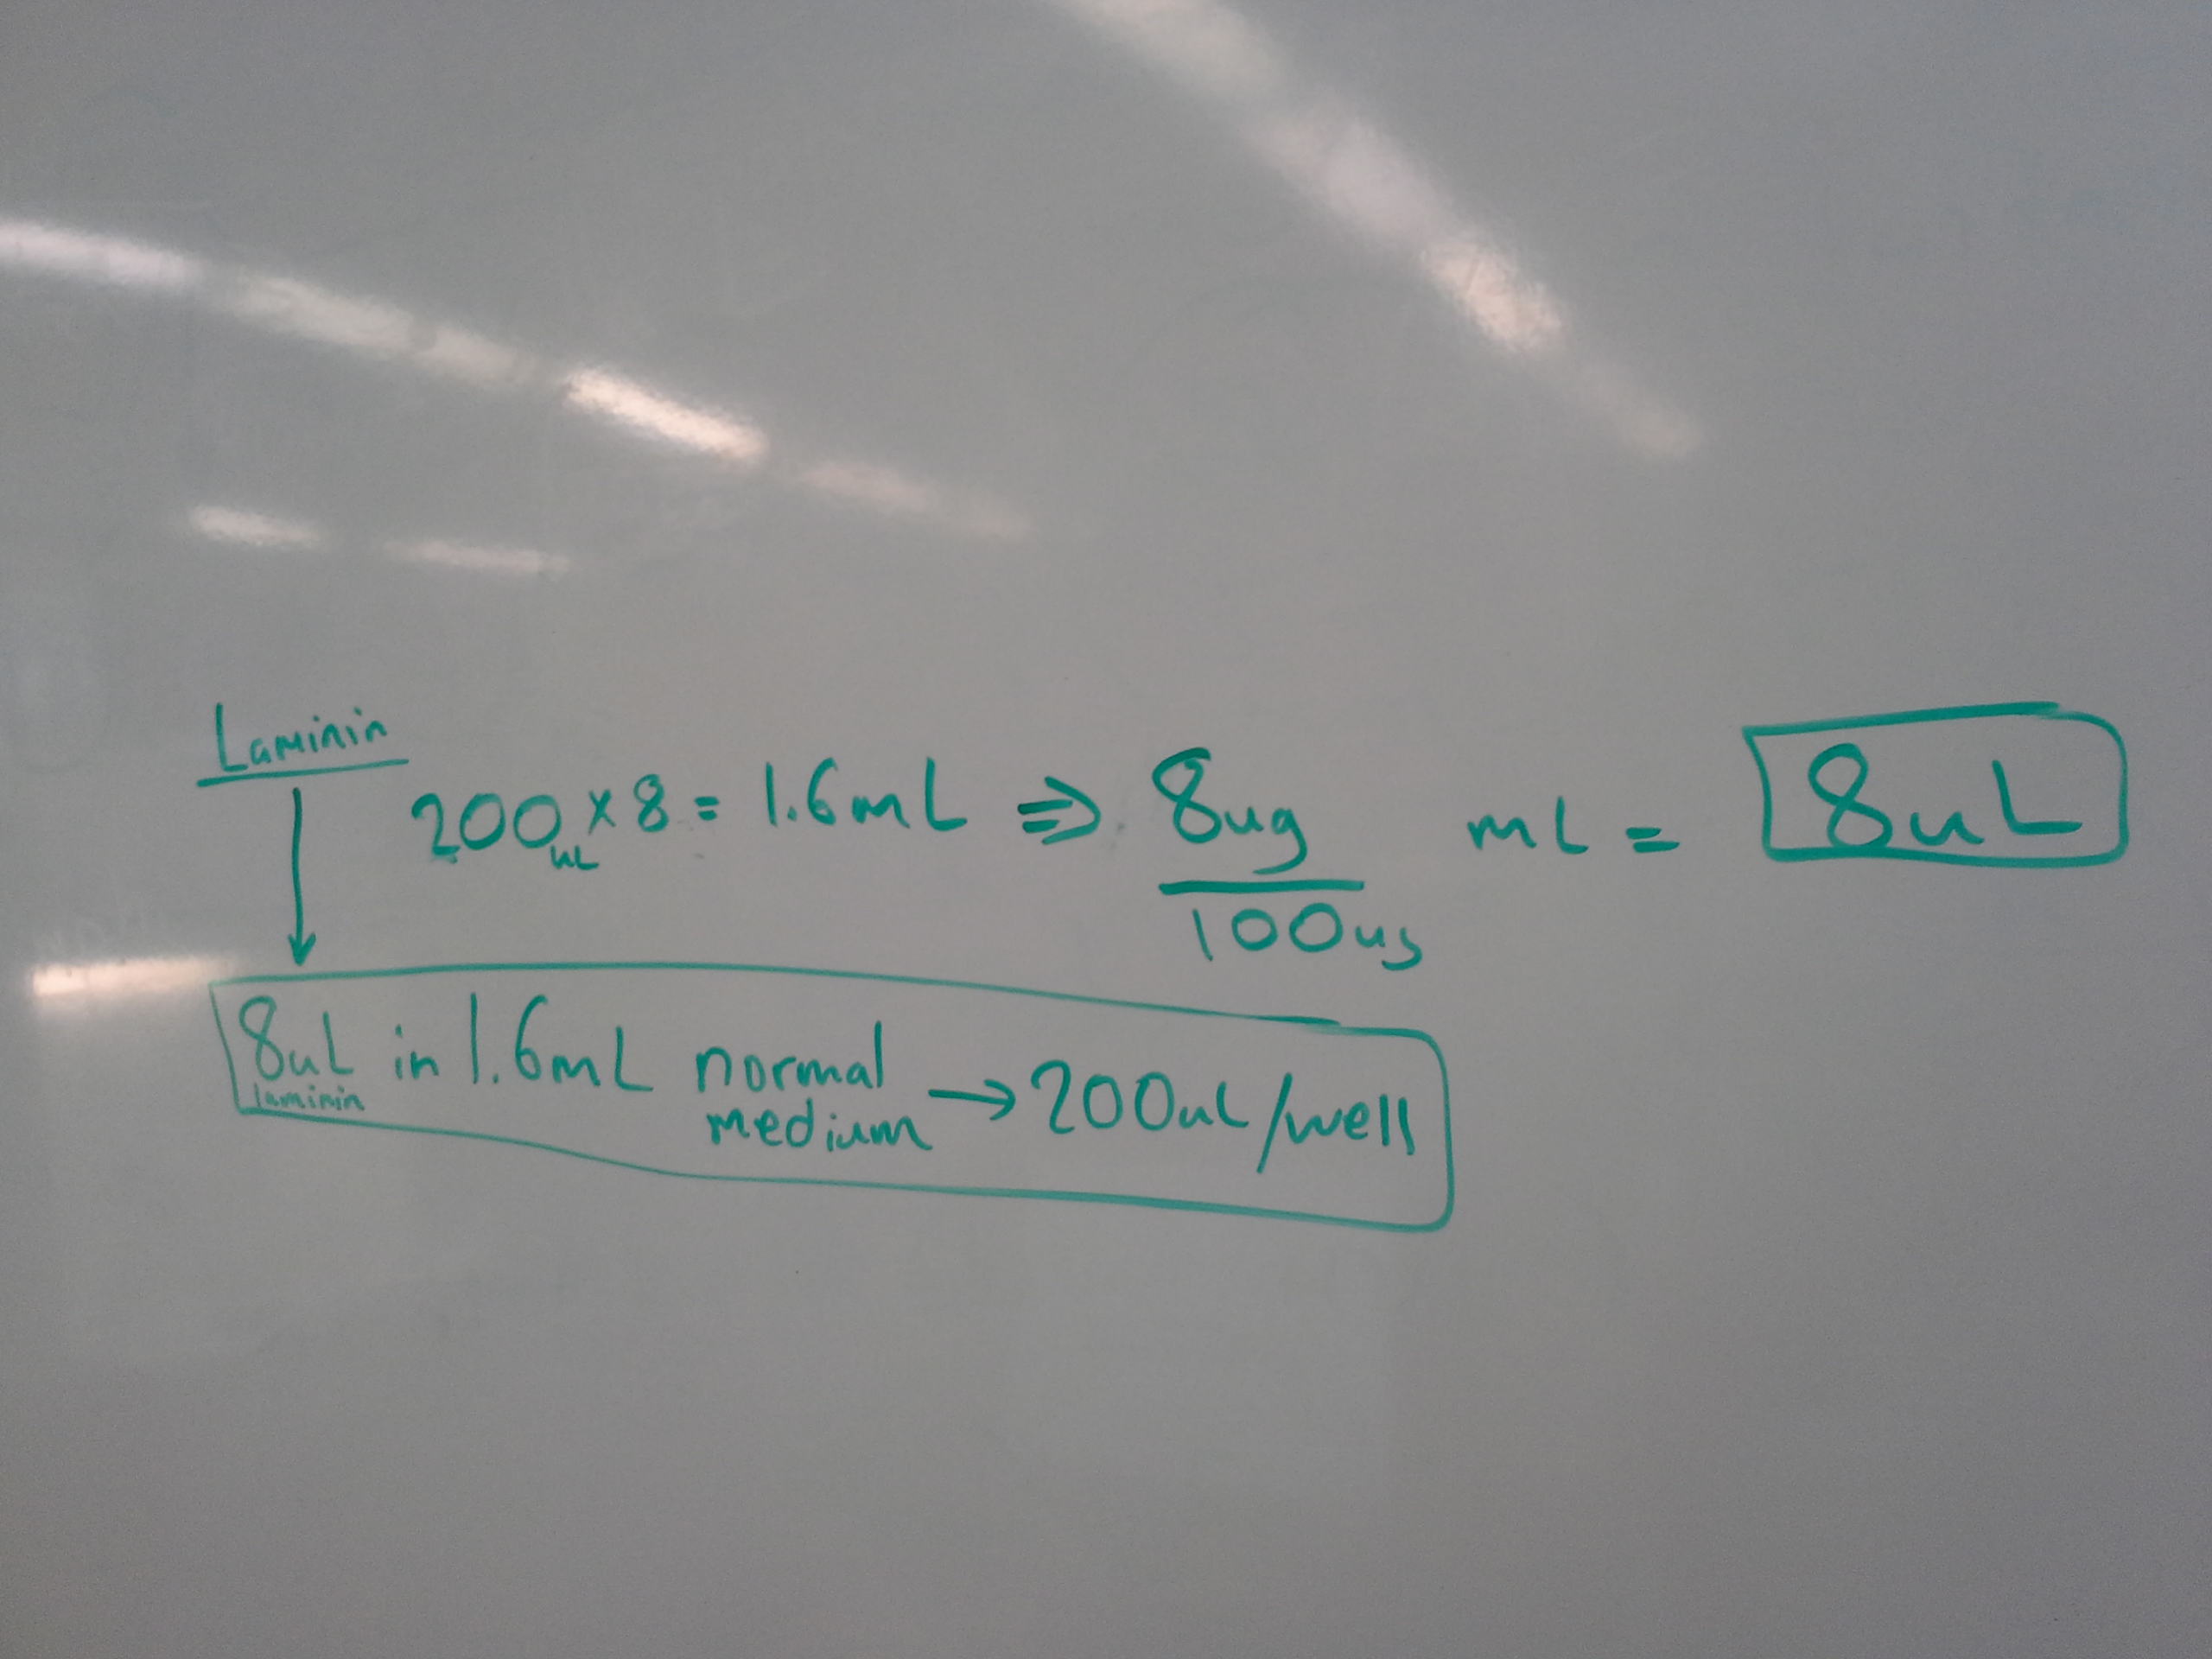 Laminin
200uL x 8 = 1.6mL ⇒ 8ug / 100ug mL = 8uL
8uL laminin in 1.6mL normal medium → 200uL/well